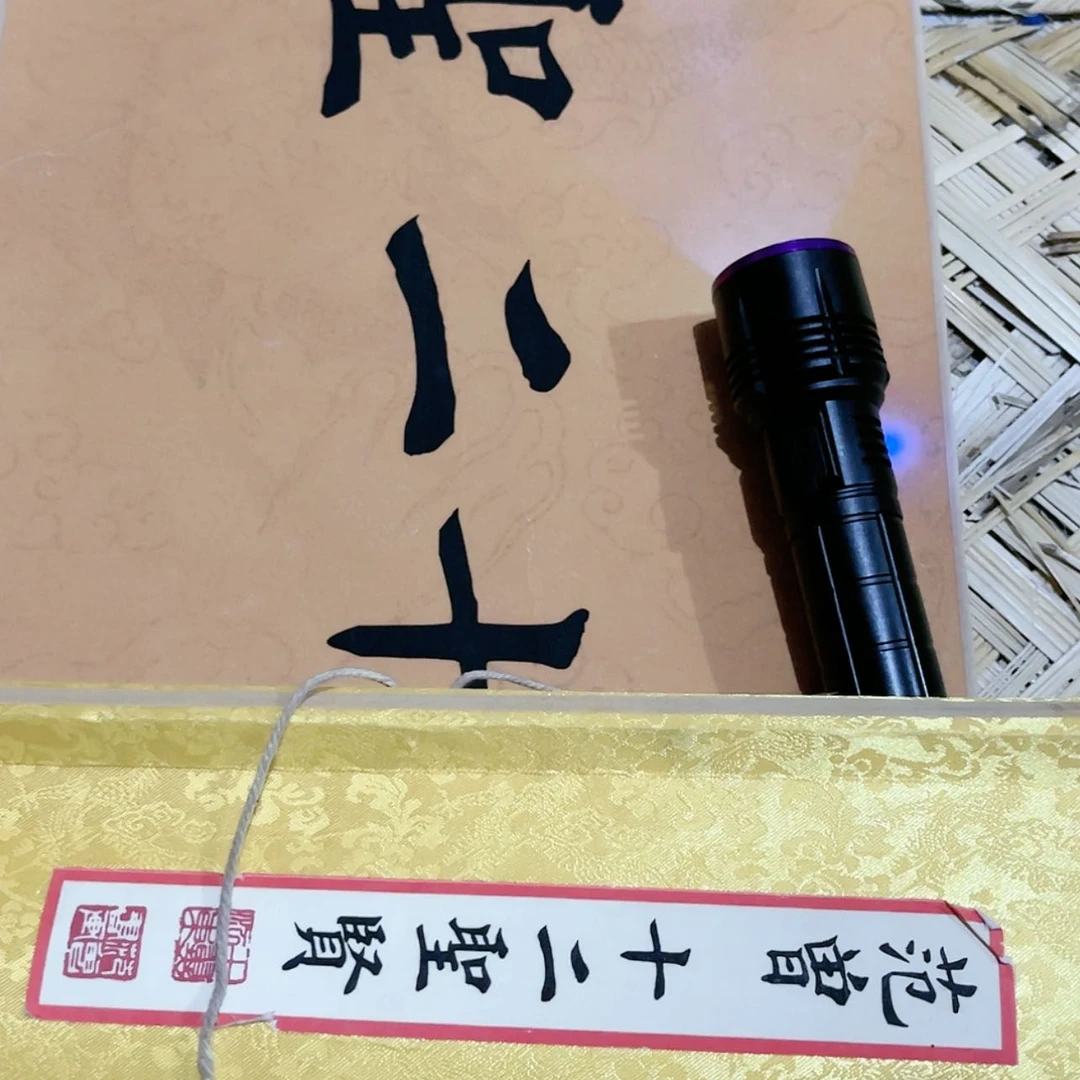 十二聖
范曾 十二聖賢